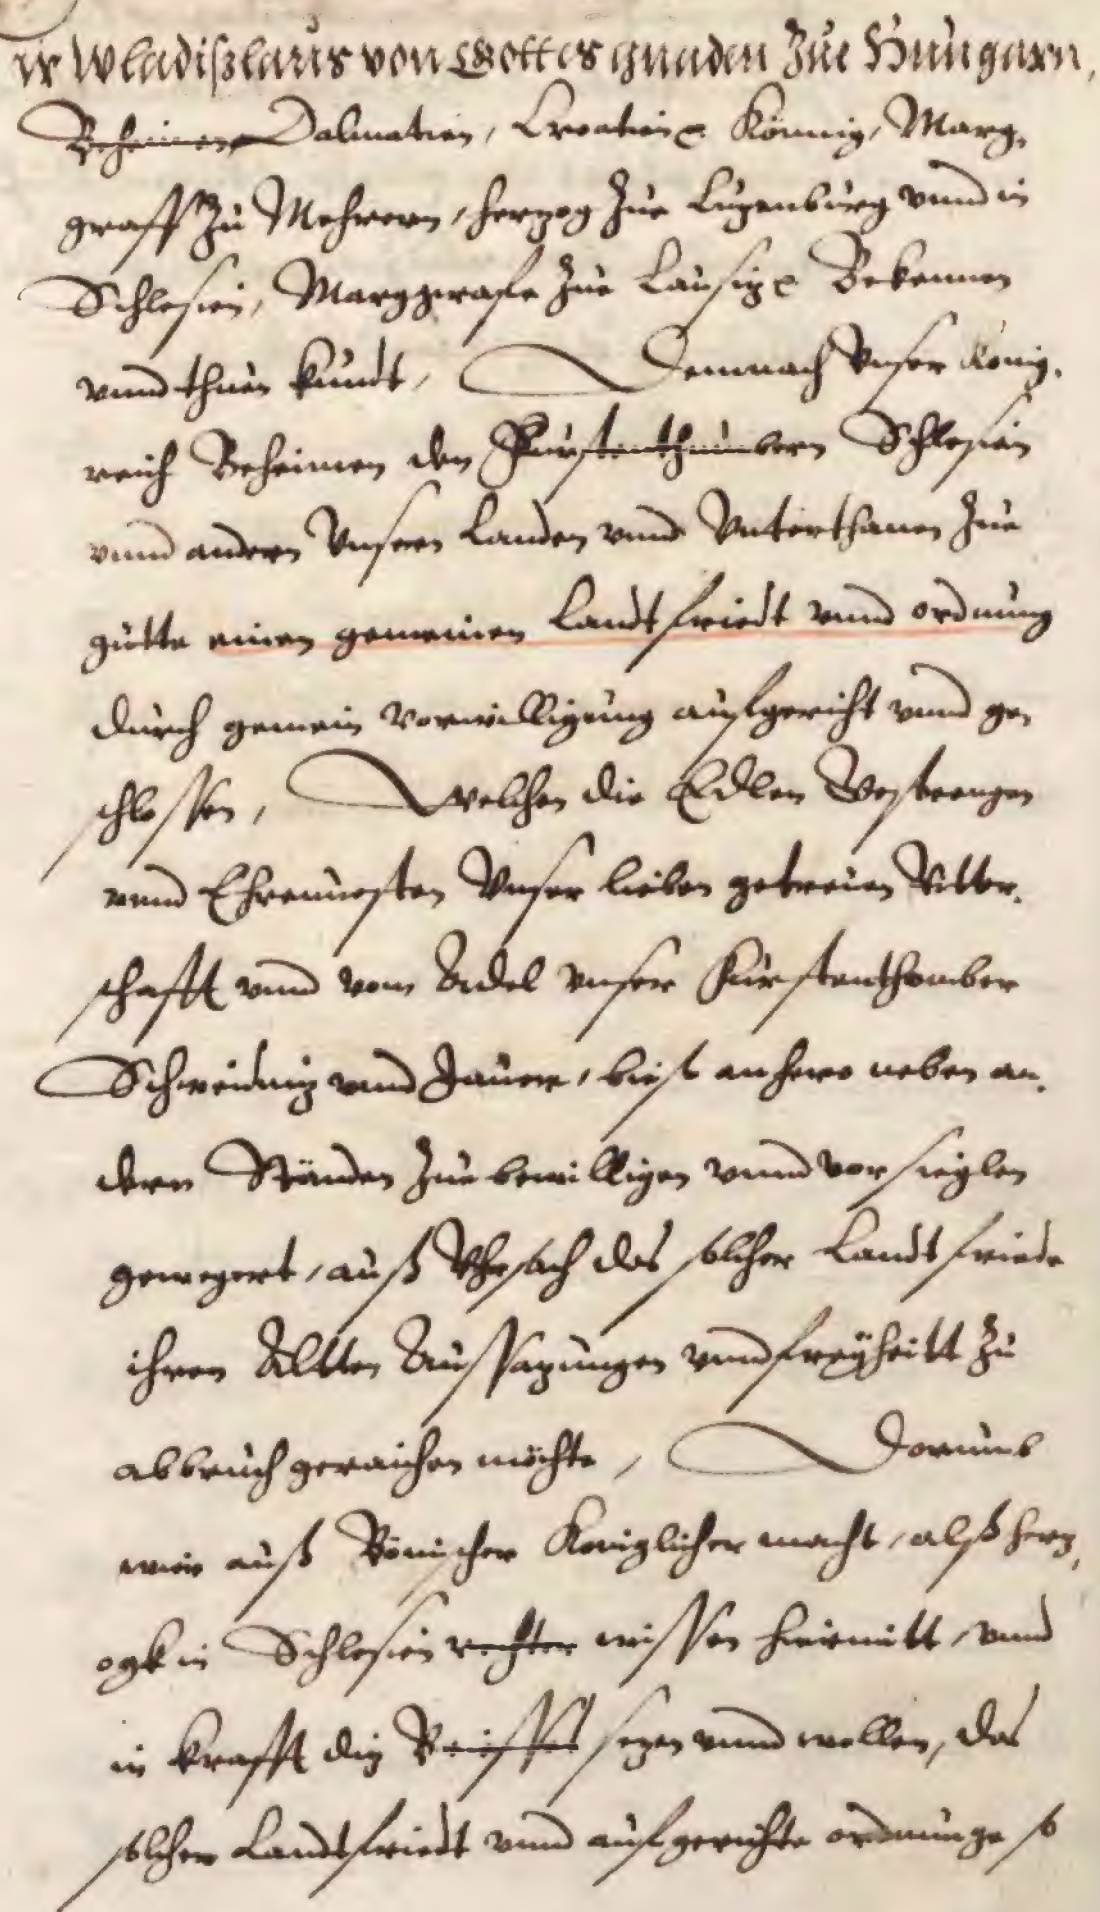 ir Wladißlaus von Gottes gnaden Zue Hungarn,
Beheimen Dalmatien, Croatien Könnig, Marg,
graff Zu Mehrern, herzog Zue Luzenburg vnnd in
Schlesien, Marggrafe Zue Lausiz Bekennen
vnnd thuen kundt, Demnach Vnser König,
reich Beheimen den Furstenthumbern Schlesien
vnnd andern Vnsern Landen vnnd Vnterthanen Zue
gütte einen gemeinen Landtfriedt vnnd ordnung
durch gemein vorwilligung aufgericht vnnd ge,
schlossen, Welchen die Edlen Gestrengen
vnnd Ehrenuesten Vnser lieben getreuen Ritter,
schafft vnnd vom Adel vnser Fürstenthomber
Schweidniz vnnd Jauer, bieß anhero neben an,
dern Ständen Zue bewilligen vnnd vorsieglen
gewegert, auß Vhrsach das solcher Landtfriede
ihren Altten Aussazungen vnnd freyheitt Zu
abbruch geraichen möchte, Dorumb
wier auß Bömischer Königlicher macht, alß herz,
ogk in Schlesien rechter wissen hiermitt, vnnd
in krafft diz Brieffs sezen vnnd wollen, das
solcher Landtfriedt vnnd aufgerichte ordnunge so